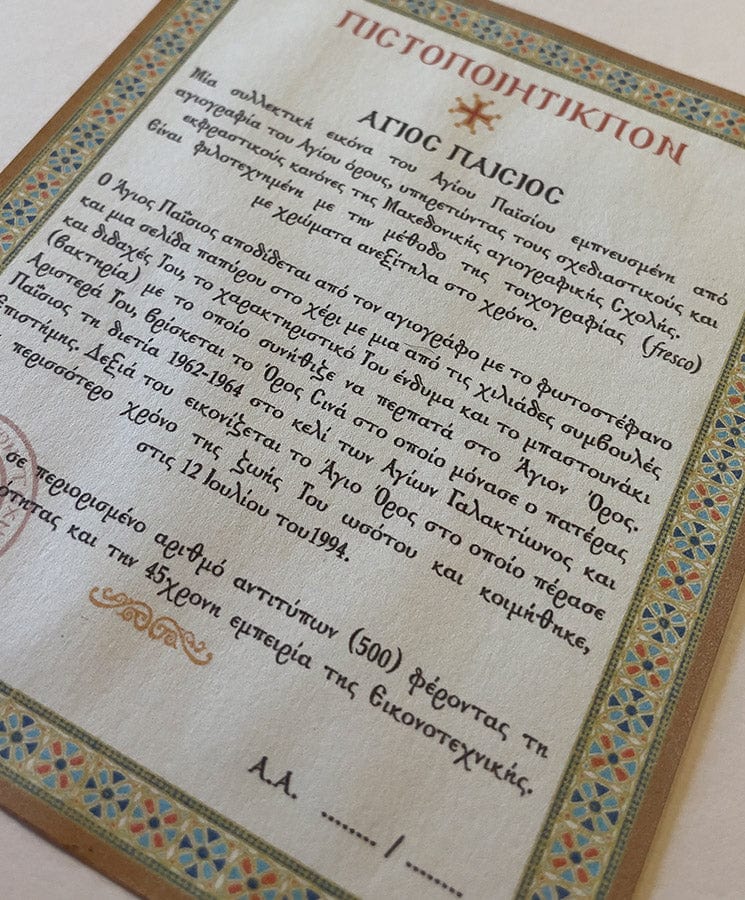 ΠΙΣΤΟΠΟΙΗΤΙΚΠΟΝ
ΑΓΙΟΣ ΠΑΙΣΙΟΣ
Μία συλλεκτική εικόνα του Αγίου Παϊσίου εμπνευσμένη από
αγιογραφία του Αγίου όρους, υπηρετώντας τους σχεδιαστικούς και
εκφραστικούς κανόνες της Μακεδονικής αγιογραφικής Σχολής.
Είναι φιλοτεχνημένη με την μέθοδο της τοιχογραφίας (fresco)
με χρώματα ανεξίτηλα στο χρόνο.
Ο Άγιος Παΐσιος αποδίδεται από τον αγιογράφο με το φωτοστέφανο
και μια σελίδα παπύρου στο χέρι με μια από τις χιλιάδες συμβουλές
και διδαχές Του, το χαρακτηριστικό Του ένδυμα και το μπαστουνάκι
(βακτηρία) με το οποίο συνήθιζε να περπατά στο Άγιον Όρος.
Αριστερά Του, βρίσκεται το Όρος Σινά στο οποίο μόνασε ο πατέρας
Παΐσιος τη διετία 1962-1964 στο κελί των Αγίων Γαλακτίωνος και
Επιστήμης. Δεξιά του εικονίζεται το Άγιο Όρος στο οποίο πέρασε
περισσότερο χρόνο της ζωής Του ωσότου και κοιμήθηκε,
στις 12 Ιουλίου του1994.
σε περιορισμένο αριθμό αντιτύπων (500) φέροντας τη
και την 45χρονη εμπειρία της Εικονοτεχνικής.
Α.Α. ........ / ........